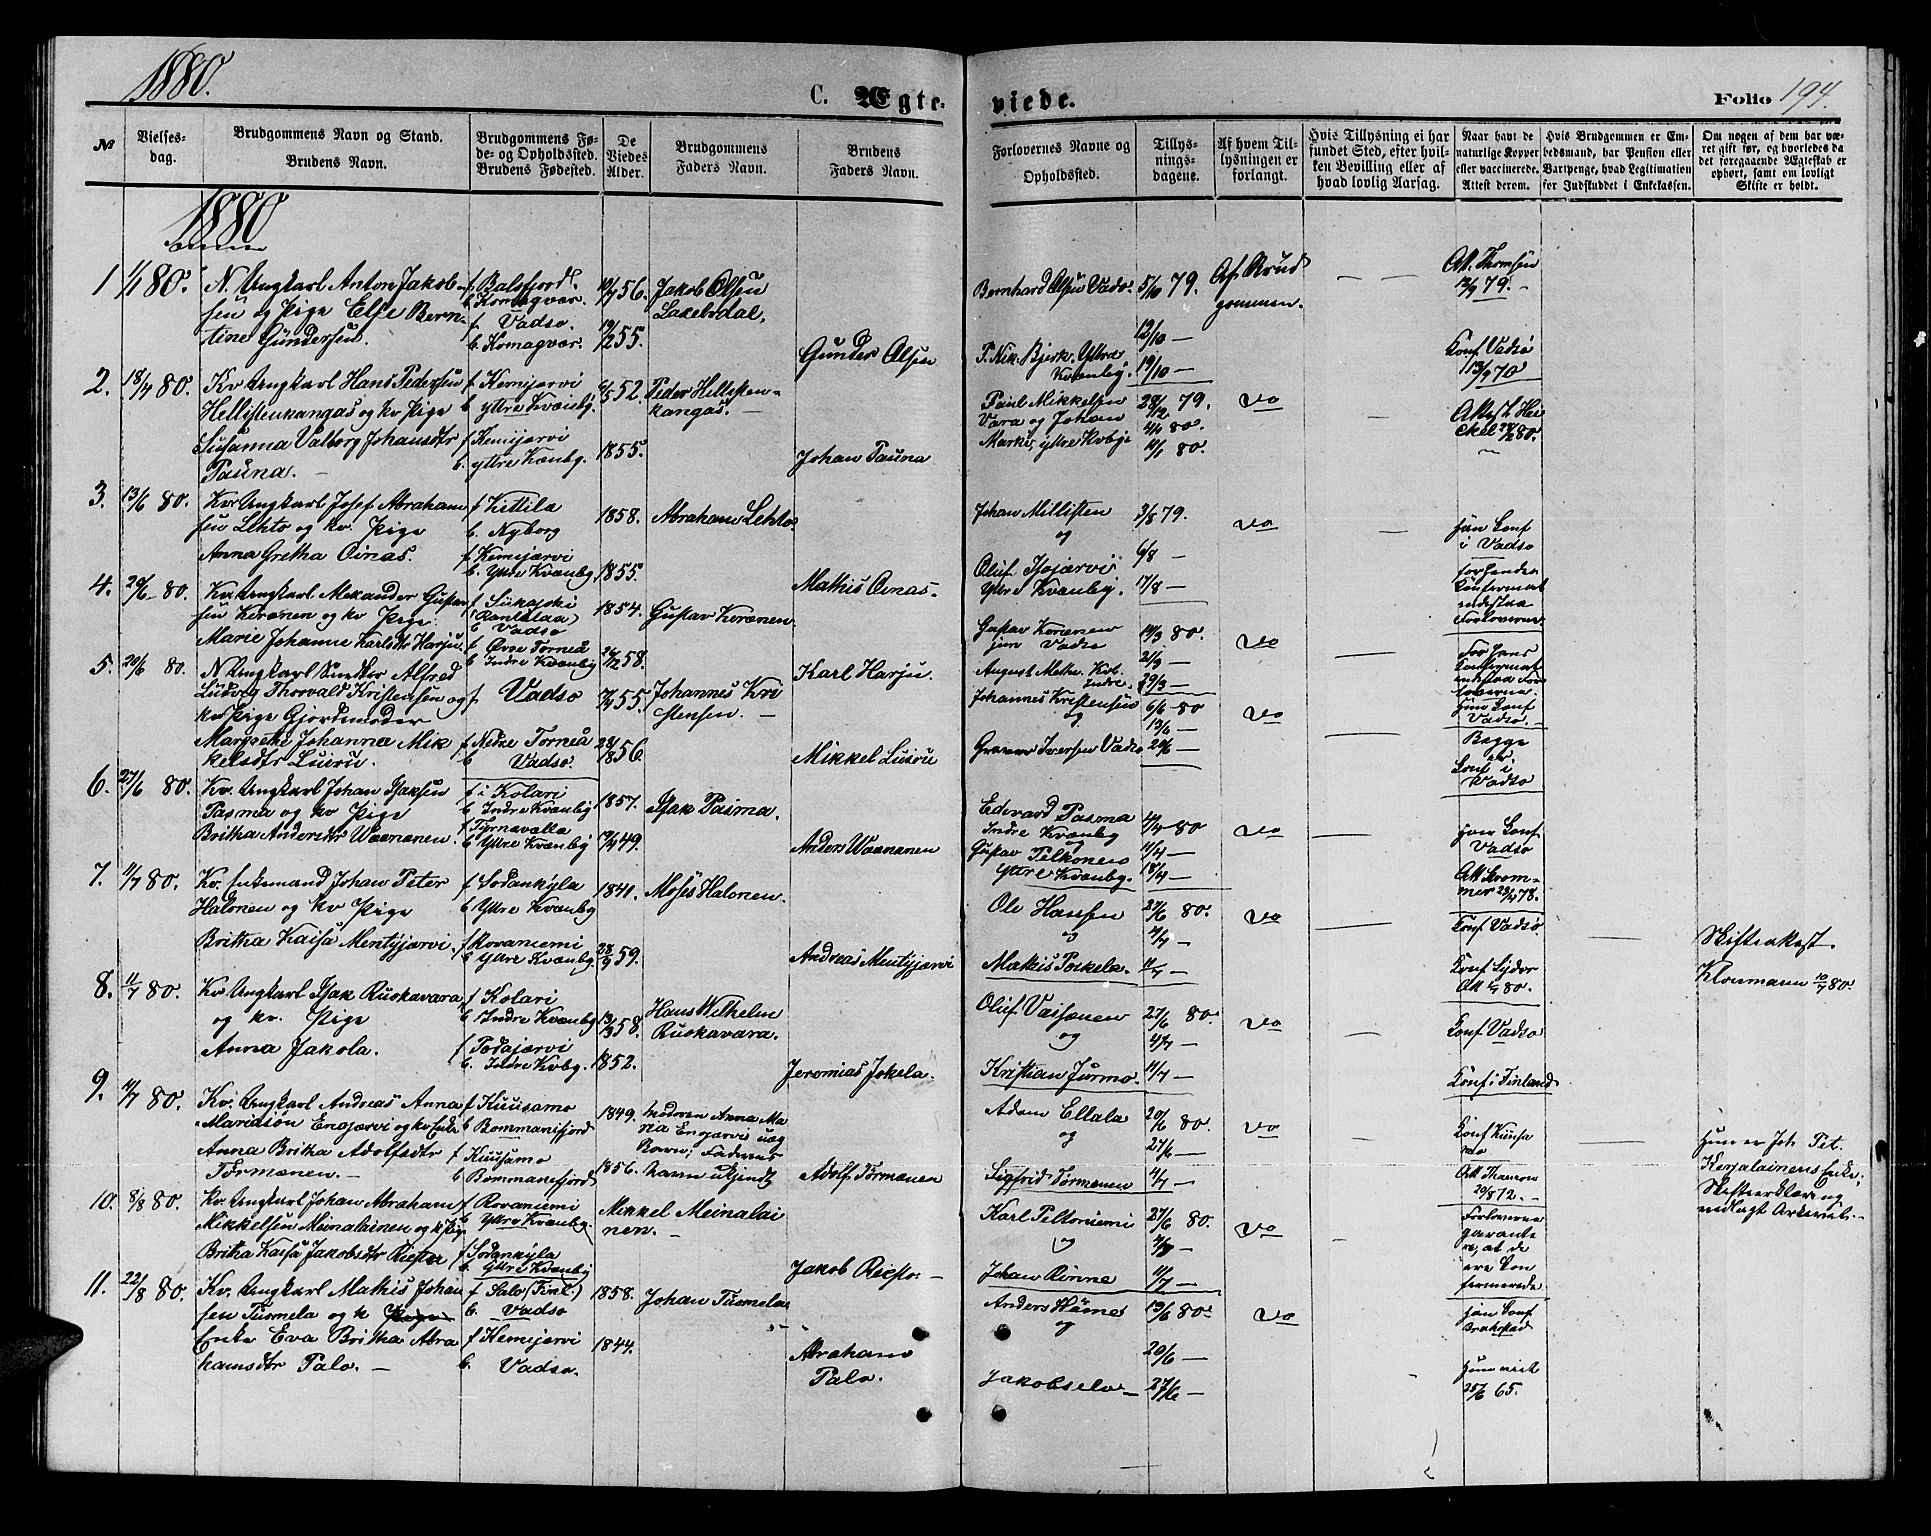 1880.
C. Ægte-
viede.
Folio 194.
№
Vielses-
dag.
Brudgommens Navn og Stand.
Brudens Navn.
Brudgommens Fø-
de- og Opholdssted.
Brudens Fødested.
De
Viedes
Alder.
Brudgommens
Faders Navn.
Brudens
Faders Navn.
Forlovernes Navne og
Opholdssted.
Tillys-
nings-
dagene.
Af hvem Til-
lysningen er
forlangt.
Hvis Tillysning ei har
fundet Sted, efter hvil-
ken Bevilling eller af
hvad lovlig Aarsag.
Naar havt de
naturlige Kopper
eller vaccinerede.
Attest derom.
Hvis Brudgommen er Em-
bedsmand, har Pension eller
Vartpenge, hvad Legitimation
for Indskuddet i Enkekassen.
Om nogen af dem har væ-
ret gift før, og hvorledes da
det foregaaende Ægteskab er
ophørt, samt om lovligt
Skifte er holdt.
1880
1 1/1 80.
N. Ungkarl Anton Jakob-
sen og Pige Else Bern-
tine Gundersen.
f Balsfjord.
b Komagvær.
f Vadsø.
b. Komagvær.
56.
19/2 55.
Jakob Olsen
Laxelvdal.
Gunder Olsen
Bernhard Olsen Vadsø.
P. Nik. Bjerk. Yttre
Kvænby.
5/10 79.
12/10 —
19/10 —
Af Brud
gommen.
Att. Thomsen
79. -
Konf Vadsø
13/9 70
2. 18/4 80.
Kv Ungkarl Hans Pedersen
Hellistenkangas og kv Pige
Susanna Valborg Johansdtr
Pauna. —
f Kemijærvi
b yttre Kvænby.
f Kemijærvi
b. yttre Kvænbg.
52.
1855.
Peder Hellisten-
kangas. —
Johan Pauna
Paul Mikkelsen
Vara og Johan
Marki, yttre Kvbye
28/12 79.
4/1 80.
11/1 80.
do
Attest Hei
ckel 80.
3. 13/6 80.
Kv Ungkarl Josef Abraham
sen Lehto og kv. Pige
Anna Gretha Oinas.
f Kittila
b. Nyborg
f Kemijærvi
b. Yttre Kvænbg
1858.
1855.
Abraham Lehto
Mathis Oinas.
Johan Millisten
og
Oluf Isojærvi
Yttre Kvænby.
3/8 79.
6/8 —
17/8 —
do
han Conf
i Vadsø
for hendes
Confirmat
indestaa
Forloverne
4. 20/6 80.
Kv. Ungkarl Alexander Gustav
sen Keränen og kv Pige
Marie Johanne Karlsdtr Harju
f Siikajoki
b Vadsø
f Øvre Torneå
b Indre Kvænbg
1854.
58.
Gustav Keränen
Karl Harju.
Gustav Keränen
jun Vadsø
August
Indre.
80.
21/3 —
29/3 —
do
For hans
Confermat
indestaa For
loverne.
Hun Conf
Vadsø.
5. 20/6 80.
N Ungkarl Alfred
Ludvig Thorvald Kristensen og
kv Pige Gjordemoder
Margrethe Johanna Mik
kelsdtr Luiru.
f. Vadsø
f Nedre Torneå
b Vadsø.
55.
56.
Johannes Kri
stensen. —
Mikkel Luiru
Johannes Kristensen
og
Iversen Vadsø
6/6 80
13/6 —
20/6 —
do
Begge
er
Conf i
Vadsø
6. 27/6 80.
Kv. Ungkarl Johan Isaksen
Pasma og kv Pige
Britha Andersdtr Waananen.
f i Kolari
b Indre Kvænbg
f Tyrnavalla
b Yttre Kvænbg
1857.
49.
Isak Pasma.
Anders Waananen
Edevard Pasma
Indre Kvænbg
og
Gustav Pelkonen
Yttre Kvænbg.
4/4 80
11/4 —
18/4 —
do
hver Conf.
Vadsø
7. 11/7 80.
Kv. Enkemand Johan Peter
Halonen og kv Pige
Britha Kaisa Mentyjærvi.
f Sodankyla
b Yttre Kvænbg
f Rovaniemi
b Yttre Kvænbg.
1841.
28/9 59.
Moses Halonen.
Andreas Mentyjærvi
Ole Hansen
og
Mathis Poikela.
27/6 80.
4/7 —
11/7 —
do
78.
Conf Vadsø
Skifteakest.
Klosmann 10/7 80.
8. 11/7 80.
Kv. Ungkarl Isak Ruokavara
og kv. Pige
Anna Jakola.
f Kolari
b Indre Kvænbg
f Podajærvi
b. Indre Kvbg.
13/3 58.
1852.
Hans Wilhelm
Ruokavara.
Jeremias Jokela.
Oluf Vaisænen
og
Kristian Jurmo.
27/6 80.
4/7 —
11/7 —
do
80.
Conf Vadsø
Konf i Finland
9. 11/7 80.
Kv. Ungkarl Andreas Anna
Mariason Enajærvi og kv Enke
Anna Britha Adolfsdtr
Tørmænen. —
f Kuusamo
b Bommansfjord
f Kuusamo
b Bommansfjord
1849.
1856.
Moderen Anna Ma
ria Enajærvi uæg
Barn; Faderens
navn ukjendt
Adolf Tørmænen
Adam Ellala
og
Sigfrid Tørmænen
20/6 80.
27/6 —
4/7 —
do
Conf Kuusa
mo
Att Thomsen
20/8 72. -
Hun er Joh Pet.
Kerjalainens Enke;
Skifteerklære og
vedlagt
10. 8/8 80.
Kv. Ungkarl Johan Abraham
Mikkelsen Meinalainen og k Pig
Britha Kaisa Jakobsdtr Riesto
f Rovaniemi
b Yttre Kvænbg.
f Sodankyla
b. Yttre Kvænbg
Mikkel Meinalai
nen. —
Jakob Riesto. —
Karl Peltoniemi
og
Johan Rinne
27/6 80.
4/7 —
11/7 —
do
Forloverne
garante
re, at de
ere Con
fermerede
11. 22/8 80.
Kv. Ungkarl Mathis Johan
sen Tusmela og k Pige
Enke Eva Britha Abra
hamsdtr Palo. —
f Salo (Finl.)
b. Vadsø
f Kemijærvi
b. Vadsø.
1858.
1844.
Johan Tusmela
Abraham
Palo.
Anders
og
Jakobselv —
13/6 80.
20/6 —
27/6 —
do
han Conf
Brahestad
Hun viet
65.